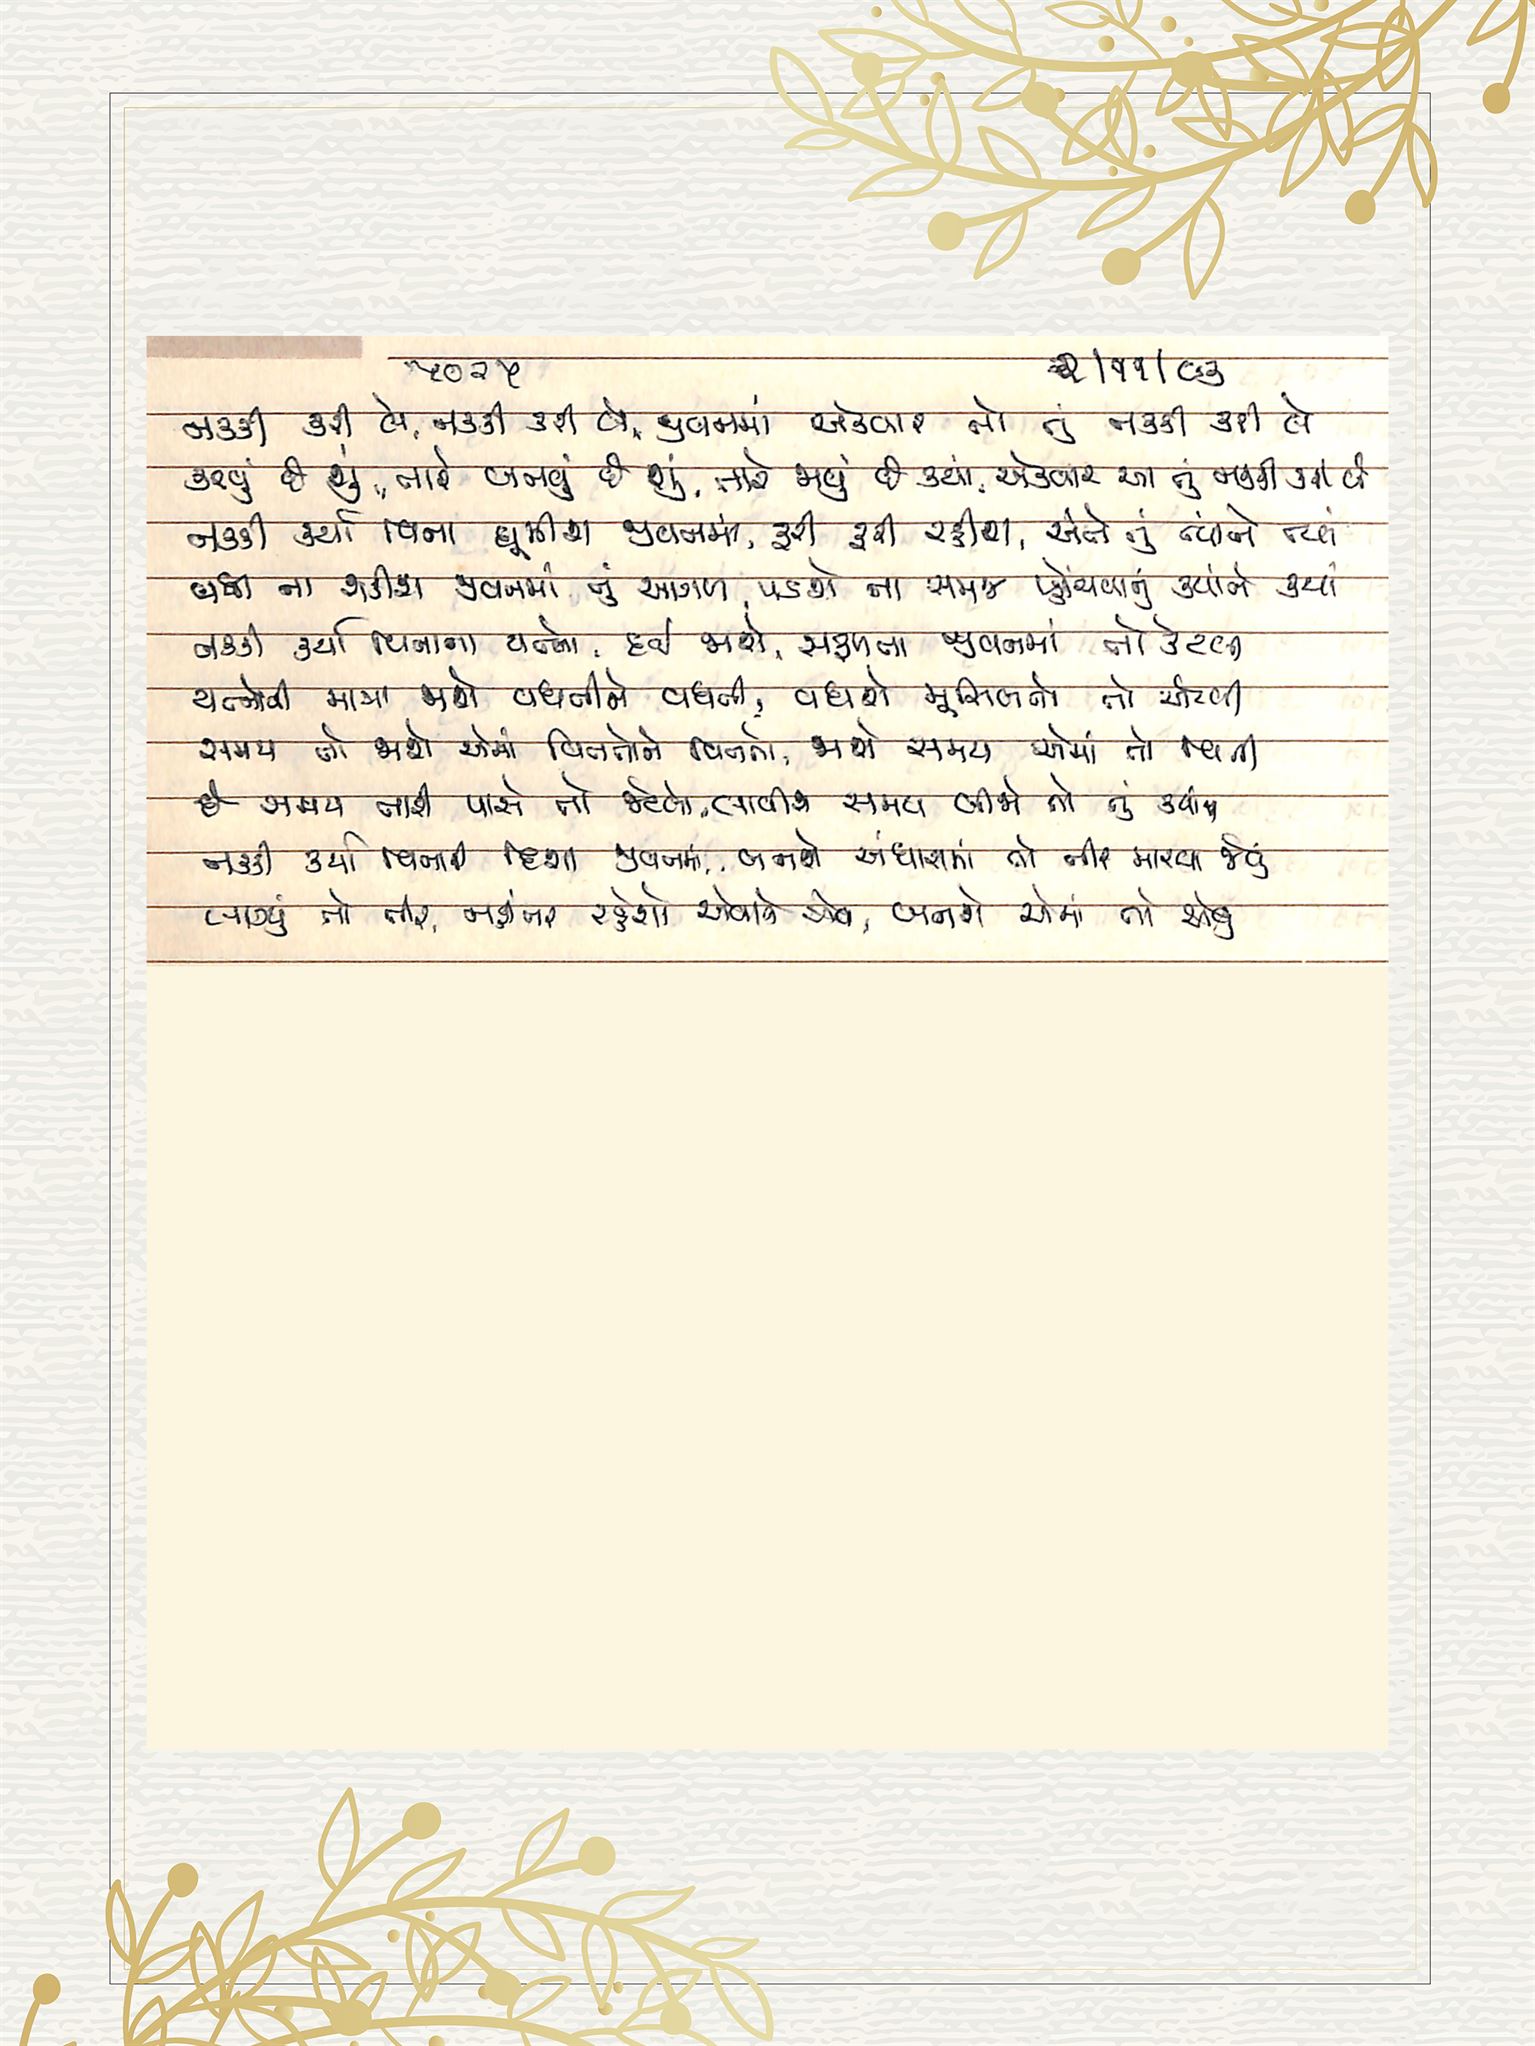 ૫૦૨૫ ૨/૧૧/૯૩
નક્કી કરી લે, નક્કી કરી લે, જીવનમાં એકવાર તો તું નક્કી કરી લે
કરવું છે શું, તારે બનવું છે શું, તારે જાવું છે ક્યાં, એકવાર આ તું નક્કી કરી લે
નક્કી કર્યા વિના ઘૂમીશ જીવનમાં, ફરી ફરી રહીશ, અંતે તું ત્યાંને ત્યાં
વધી ના શકીશ જીવનમાં તું આગળ, પડશે ના સમજ પ્હોંચવાનું ક્યાંને ક્યાં
નક્કી કર્યા વિનાના યત્નો, દઈ જાશે, સફળતા જીવનમાં તો કેટલી
યત્નોની માત્રા જાશે વધતીને વધતી, વધશે મૂસિબતો તો એટલી
સમય તો જાશે એમાં વિતતોને વિતતો, જાશે સમય એમાં તો વિતી
છે સમય તારી પાસે તો જેટલો, લાવીશ સમય બીજો તો તું ક્યાંથી
નક્કી કર્યા વિનાની દિશા જીવનમાં, બનશે અંધારામાં તો તીર મારવા જેવું
લાગ્યું તો તીર, નહીંતર રહેશો એવાને એવા, બનશે એમાં તો એવું